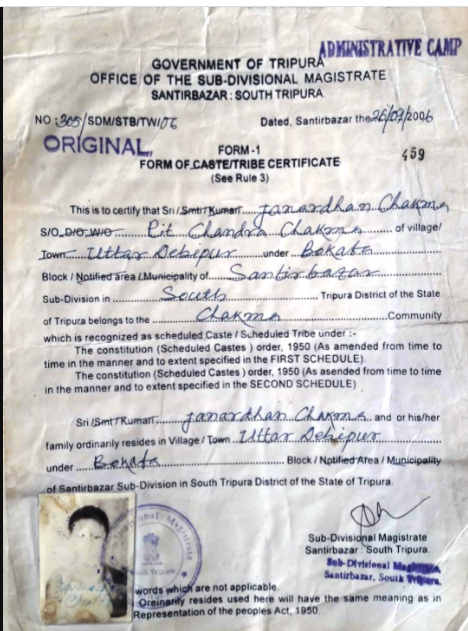 ADMINISTRATIVE CAMP
GOVERNMENT OF TRIPURA
OFFICE OF THE SUB-DIVISIONAL MAGISTRATE
SANTIRBAZAR : SOUTH TRIPURA.
NO : 305/SDM/STB/TW/06 Dated, Santirbazar the 26/03/2006
ORIGINAL.
FORM-1 459
FORM OF CASTE/TRIBE CERTIFICATE
(See Rule 3)
This is to certify that Sri / Smti / Kumari Janardhan Chakma
S/O D/O W/O Pit Chandra Chakma of village/
Town Uttar Debipur under Bokafa
Block / Notified area / Municipality of Santirbazar
Sub-Division in South Tripura District of the State
of Tripura belongs to the Chakma Community
which is recognized as scheduled Caste / Scheduled Tribe under :-
The constitution (Scheduled Castes ) order, 1950 (As amended from time to
time in the manner and to extent specified in the FIRST SCHEDULE).
The constitution (Scheduled Castes ) order, 1950 (As asended from time to time
in the manner and to extent specified in the SECOND SCHEDULE)
Sri /Smt / Kumari Janardhan Chakma and or his/her
family ordinarily resides in Village / Town Uttar Debipur
under Bokafa Block / Notified Area / Municipality
of Santirbazar Sub-Division in South Tripura District of the State of Tripura.
Sub-Divisional Magistrate
Santirbazar : South Tripura.
Sub-Divisional Magistrate
Santirbazar, South Tripura.
words which are not applicable.
Oreinarily resides used here will have the same meaning as in
Representation of the peoples Act, 1950.